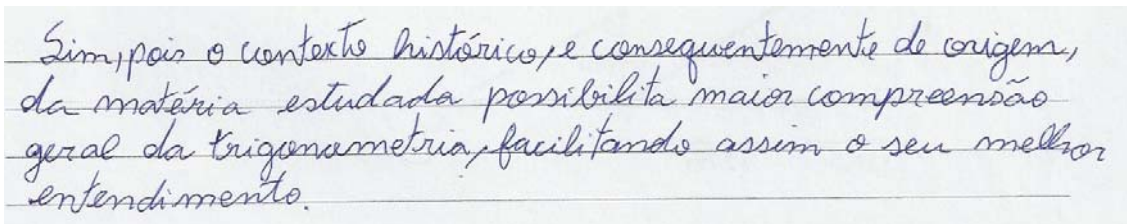 Sim, pois o contexto histórico, e consequentemente de origem,
da matéria estudada possibilita maior compreensão
geral da trigonometria, facilitando assim o seu melhor
entendimento.